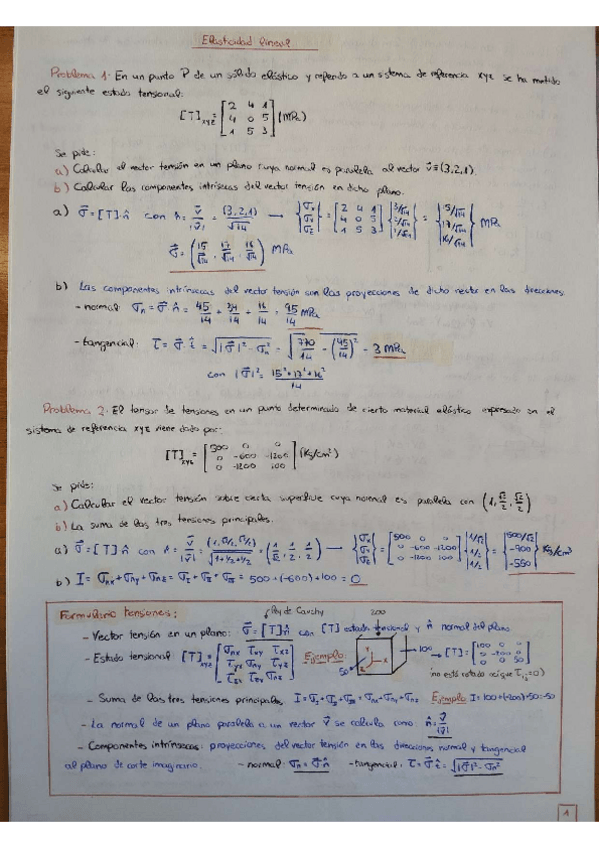 Elasticidad lineal
Problema 1. En un punto P de un sólido elástico y referido a un sistema de referencia xyz se ha medido
el siguiente estado tensional:
[T]xyz = [2 4 1; 4 0 5; 1 5 3] (MPa)
Se pide:
a) Calcular el vector tensión en un plano cuya normal es paralela al vector v=(3,2,1).
b) Calcular las componentes intrísecas del vector tensión en dicho plano.
a) σ = [T] n con n = v/|v| = (3,2,1)/√14 → {σx σy σz} = [2 4 1; 4 0 5; 1 5 3] {3/√14 2/√14 1/√14} = {15/√14 17/√14 16/√14} MPa
σ = (15/√14, 17/√14, 16/√14) MPa
b) Las componentes intrínsecas del vector tensión son las proyecciones de dicho vector en las direcciones:
- normal: σn = σ · n = 45/14 + 34/14 + 16/14 = 95/14 MPa
- tangencial: τ = σ · t = √(|σ|² - σn²) = √(770/14 - (95/14)²) = 3 MPa
con |σ|² = (15² + 17² + 16²)/14
Problema 2. El tensor de tensiones en un punto determinado de cierto material elástico expresado en el
sistema de referencia xyz viene dado por:
[T]xyz = [500 0 0; 0 -600 -1200; 0 -1200 100] (Kg/cm²)
Se pide:
a) Calcular el vector tensión sobre cierta superficie cuya normal es paralela con (1, √2/2, √2/2)
b) La suma de las tres tensiones principales.
a) σ = [T] n con n = v/|v| = (1, √2/2, √2/2)/√(1+1/2+1/2) = (1/√2, 1/2, 1/2) → {σx σy σz} = [500 0 0; 0 -600 -1200; 0 -1200 100] {1/√2 1/2 1/2} = {500/√2 -900 -550} Kg/cm²
b) I = σnx + σny + σnz = σI + σII + σIII = 500 + (-600) + 100 = 0
Formulario tensiones:
ley de Cauchy
- Vector tensión en un plano: σ = [T] n con [T] estado tensional y n normal del plano
- Estado tensional: [T]xyz = [σnx τxy τxz; τyx σny τyz; τzx τzy σnz] Ejemplo: 200 100 50 → [T] = [100 0 0; 0 -200 0; 0 0 50]
- Suma de las tres tensiones principales I = σI + σII + σIII = σnx + σny + σnz Ejemplo I = 100 + (-200) + 50 = -50
- La normal de un plano paralela a un vector v se calcula como: n = v/|v|
- Componentes intrínsecas: proyecciones del vector tensión en las direcciones normal y tangencial
al plano de corte imaginario. - normal: σn = σ n - tangencial: τ = σ t = √(|σ|² - σn²)
1